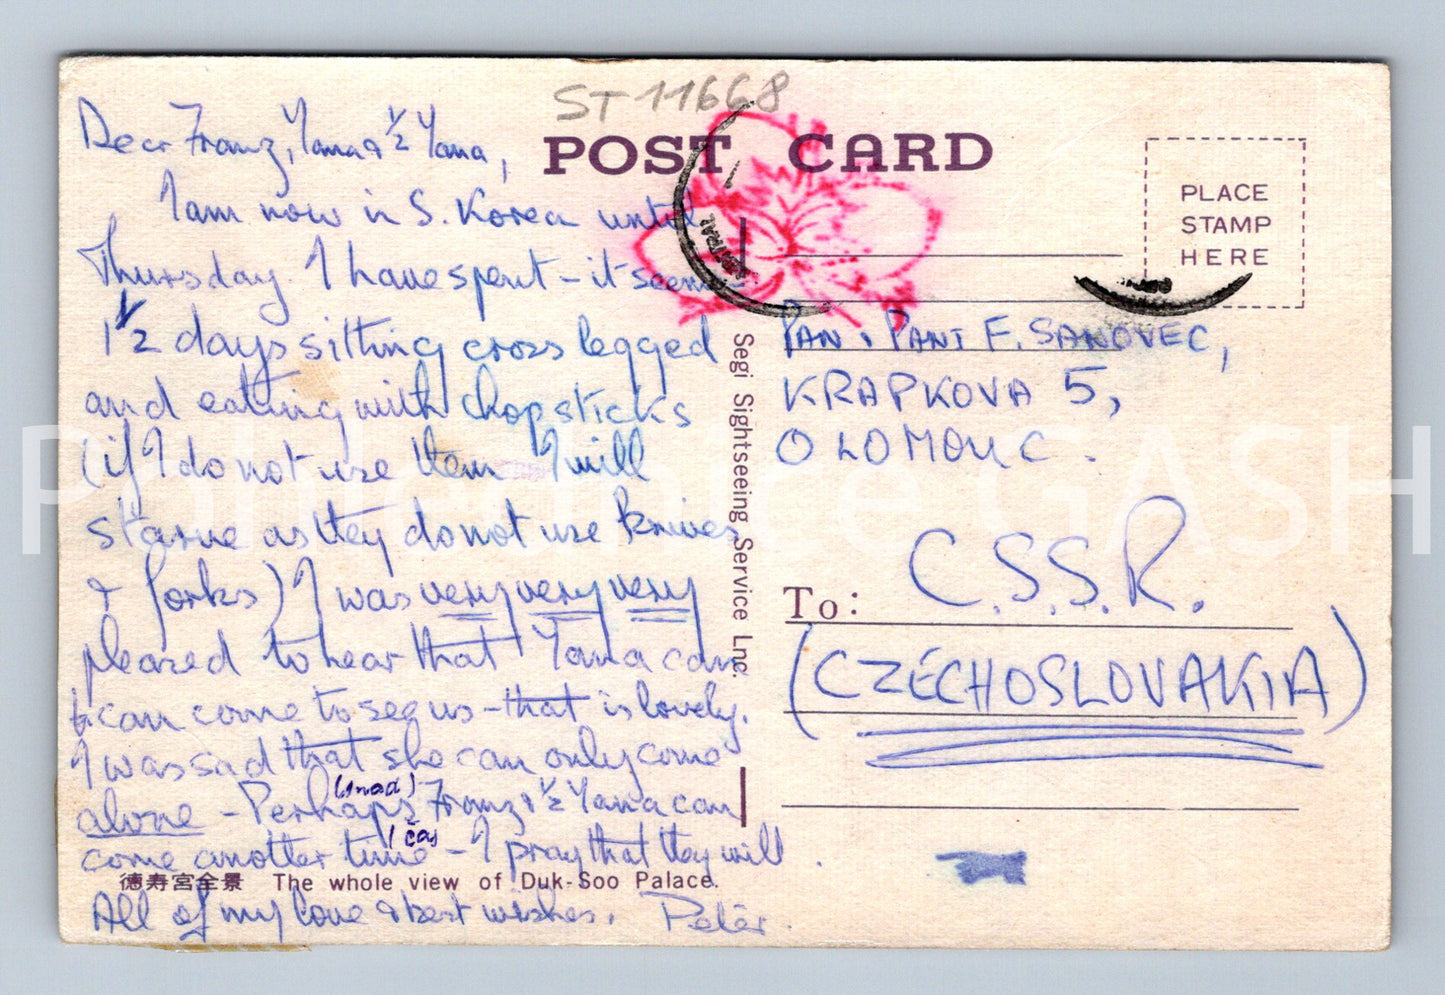 ST 11668
POST CARD
PLACE
STAMP
HERE
Dear Franz, Yana & ½ Yana,
I am now in S. Korea until
Thursday. I have spent – it seems –
1½ days sitting cross legged
and eating with chopsticks
(if I do not use them I will
starve as they do not use knives
& forks) I was very very very
pleased to hear that Yana can
can come to see us – that is lovely.
I was sad that she can only come
alone – Perhaps (snad) Franz & ½ Yana can
come another time (čas – I pray that they will.
德寿宮全景 The whole view of Duk-Soo Palace.
All of my love & best wishes. Peter.
Segi Sightseeing Service Lnc.
PAN & PANI F. SANOVEC,
KRAPKOVA 5,
OLOMOUC.
To: C.S.S.R.
(CZECHOSLOVAKIA)
Pohlednice GASH